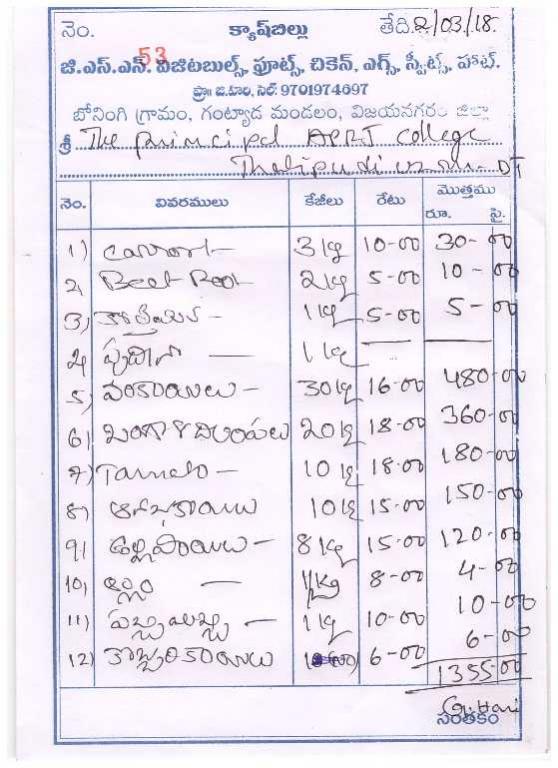 నెం. క్యాష్‌బిల్లు తేది. 2/03/18.
53
జి.ఎస్.ఎన్. విజిటబుల్స్, ఫ్రూట్స్, చికెన్, ఎగ్స్, స్వీట్స్, హాట్.
ప్రొః జి.హరి, సెల్: 9701974697
బోనింగి గ్రామం, గంట్యాడ మండలం, విజయనగరం జిల్లా
శ్రీ The principal APRJ College
Thatipudi VZM- DT
నెం. వివరములు కేజీలు రేటు మొత్తము
రూ. పై.
1) Carrot- 3 kg 10-00 30-00
2) Beet Root 2 kg 5-00 10-00
3) కొత్తిమీర- 1 kg 5-00 5-00
4) పుదీనా — 1 kg —
5) వంకాయలు- 30 kg 16-00 480-00
6) బంగాళదుంపలు 20 kg 18-00 360-00
7) Tamato- 10 kg 18-00 180-00
8) ఆనపకాయలు 10 kg 15-00 150-00
9) ఉల్లిపాయలు- 8 kg 15-00 120-00
10) అల్లం — 8-00 4-00
11) — 1 kg 10-00 10-00
12) కొబ్బరికాయలు 6-00 6-00
1355-00
G. Hari
సంతకం